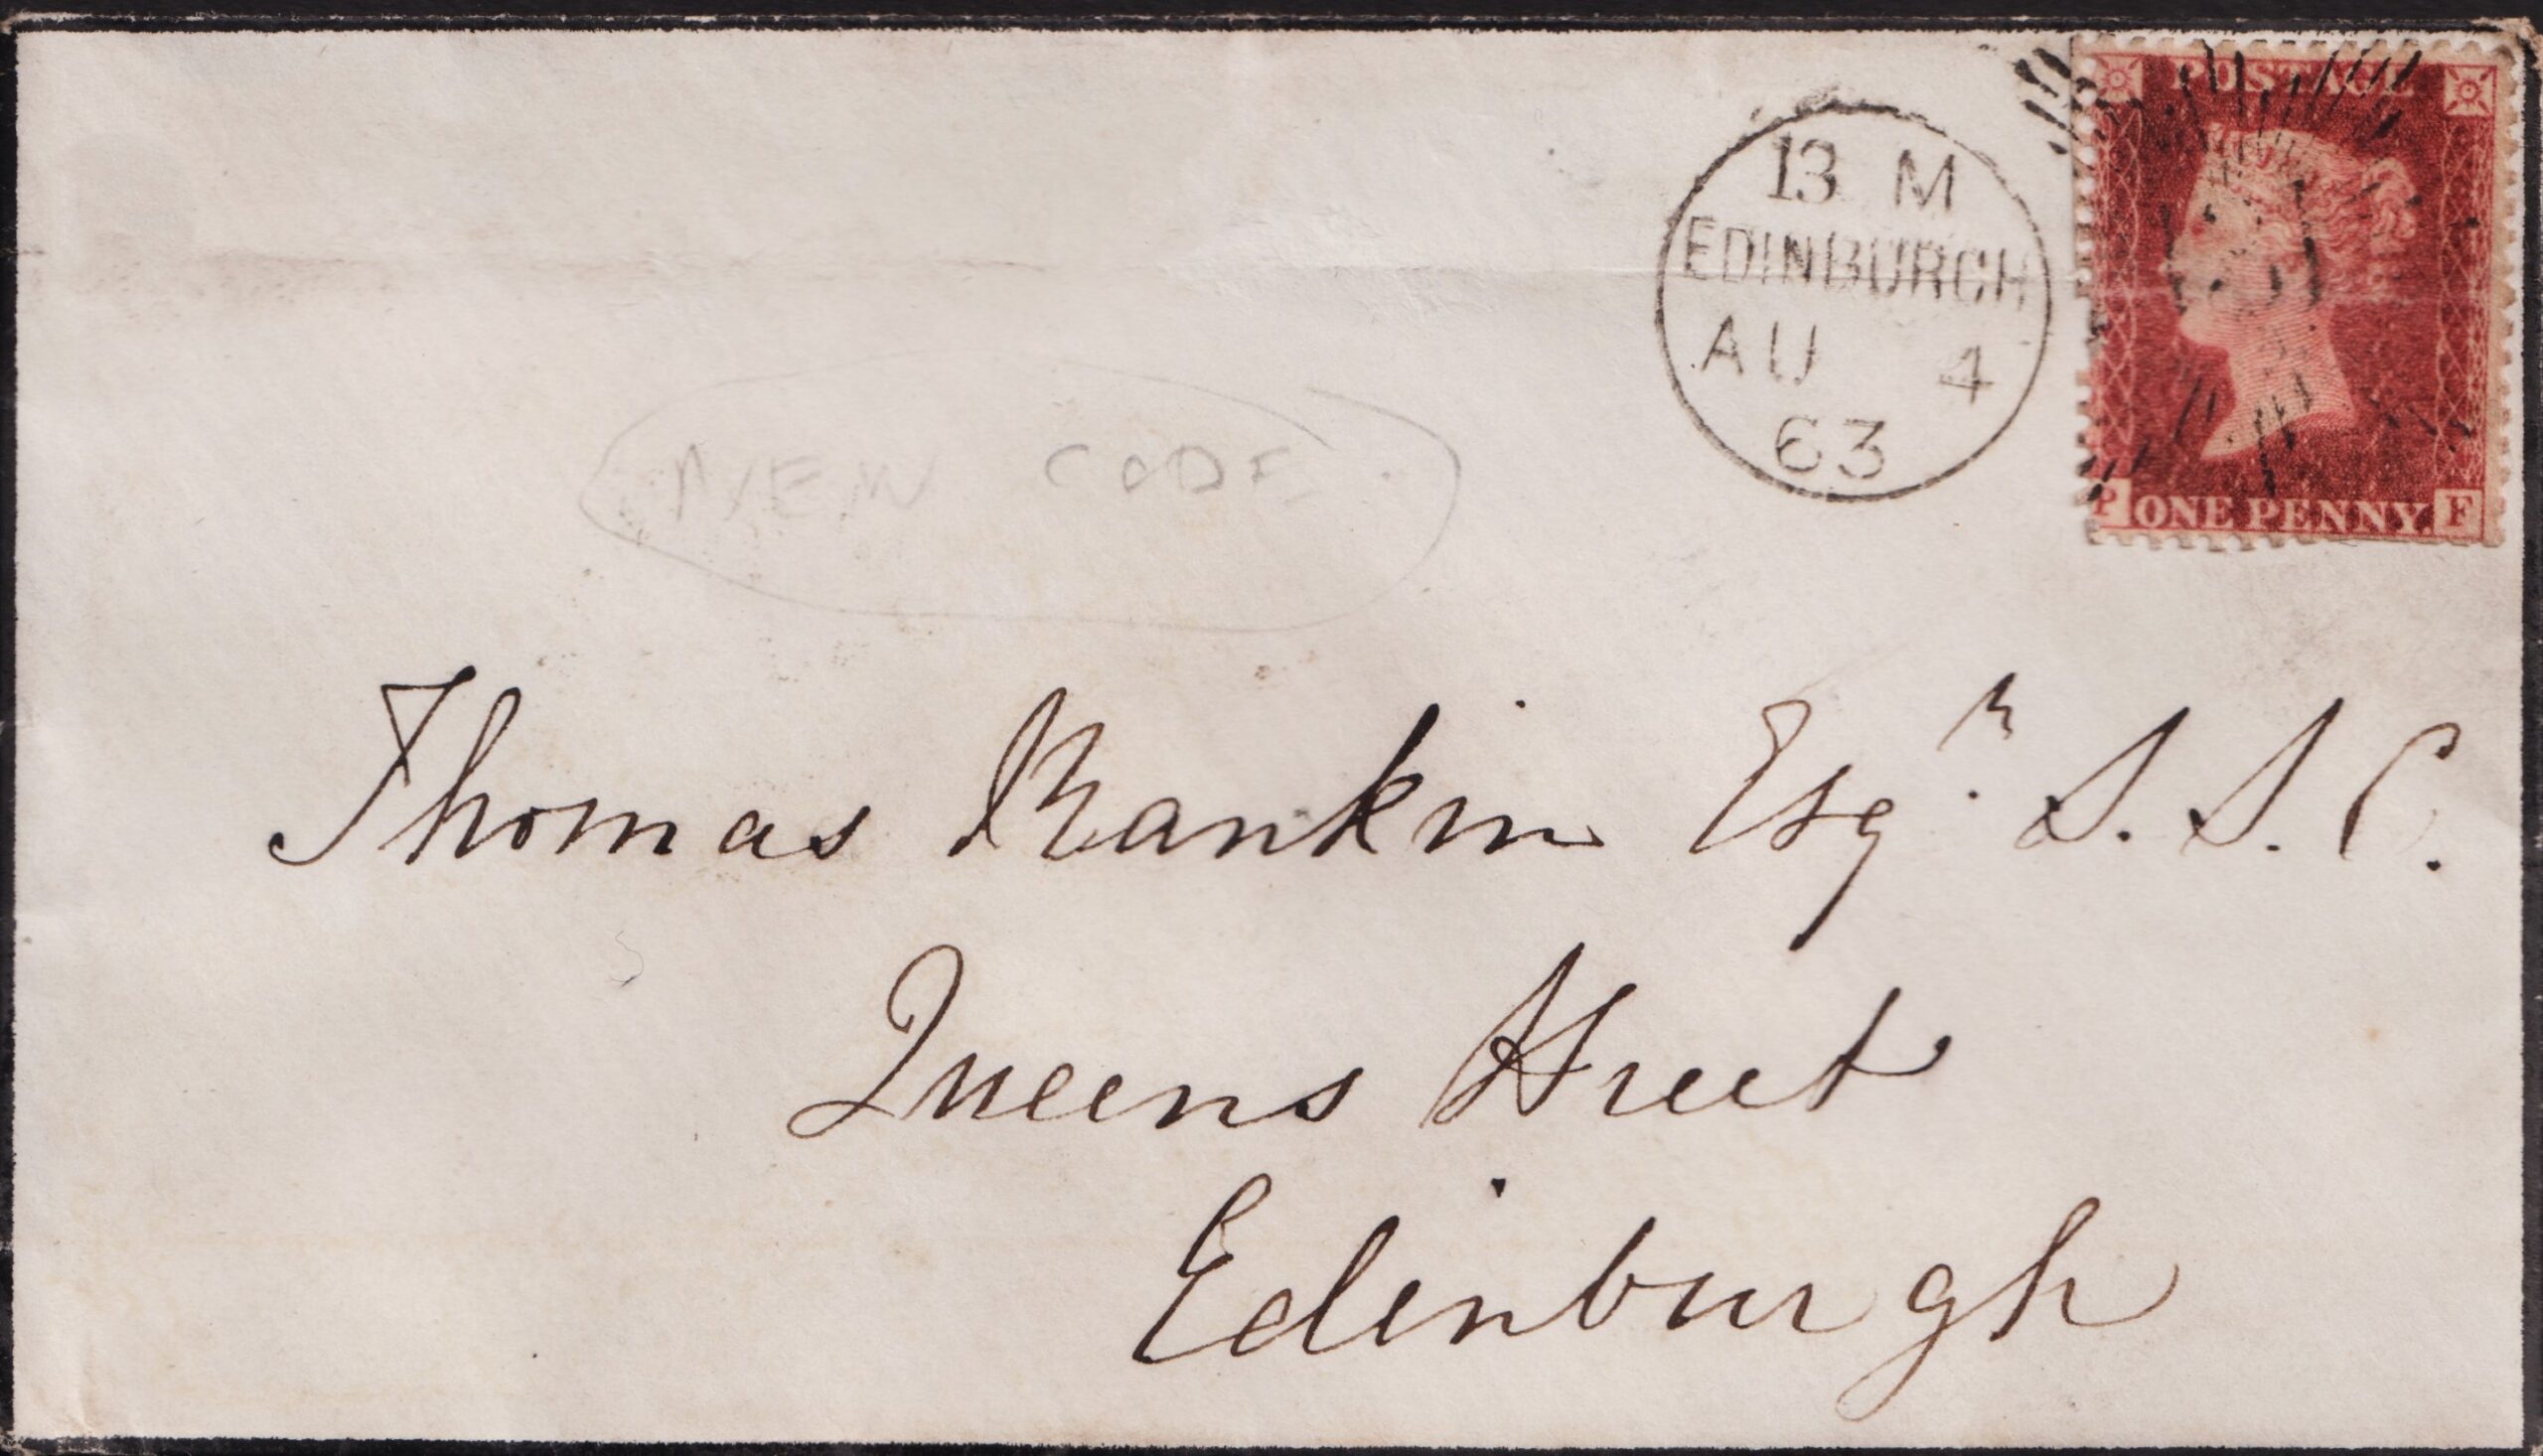 POSTAGE
13 M
EDINBURGH
AU 4
63
P ONE PENNY. F
NEW CODE
Thomas Rankin Esqr. S. S. C.
Queens Street
Edinburgh